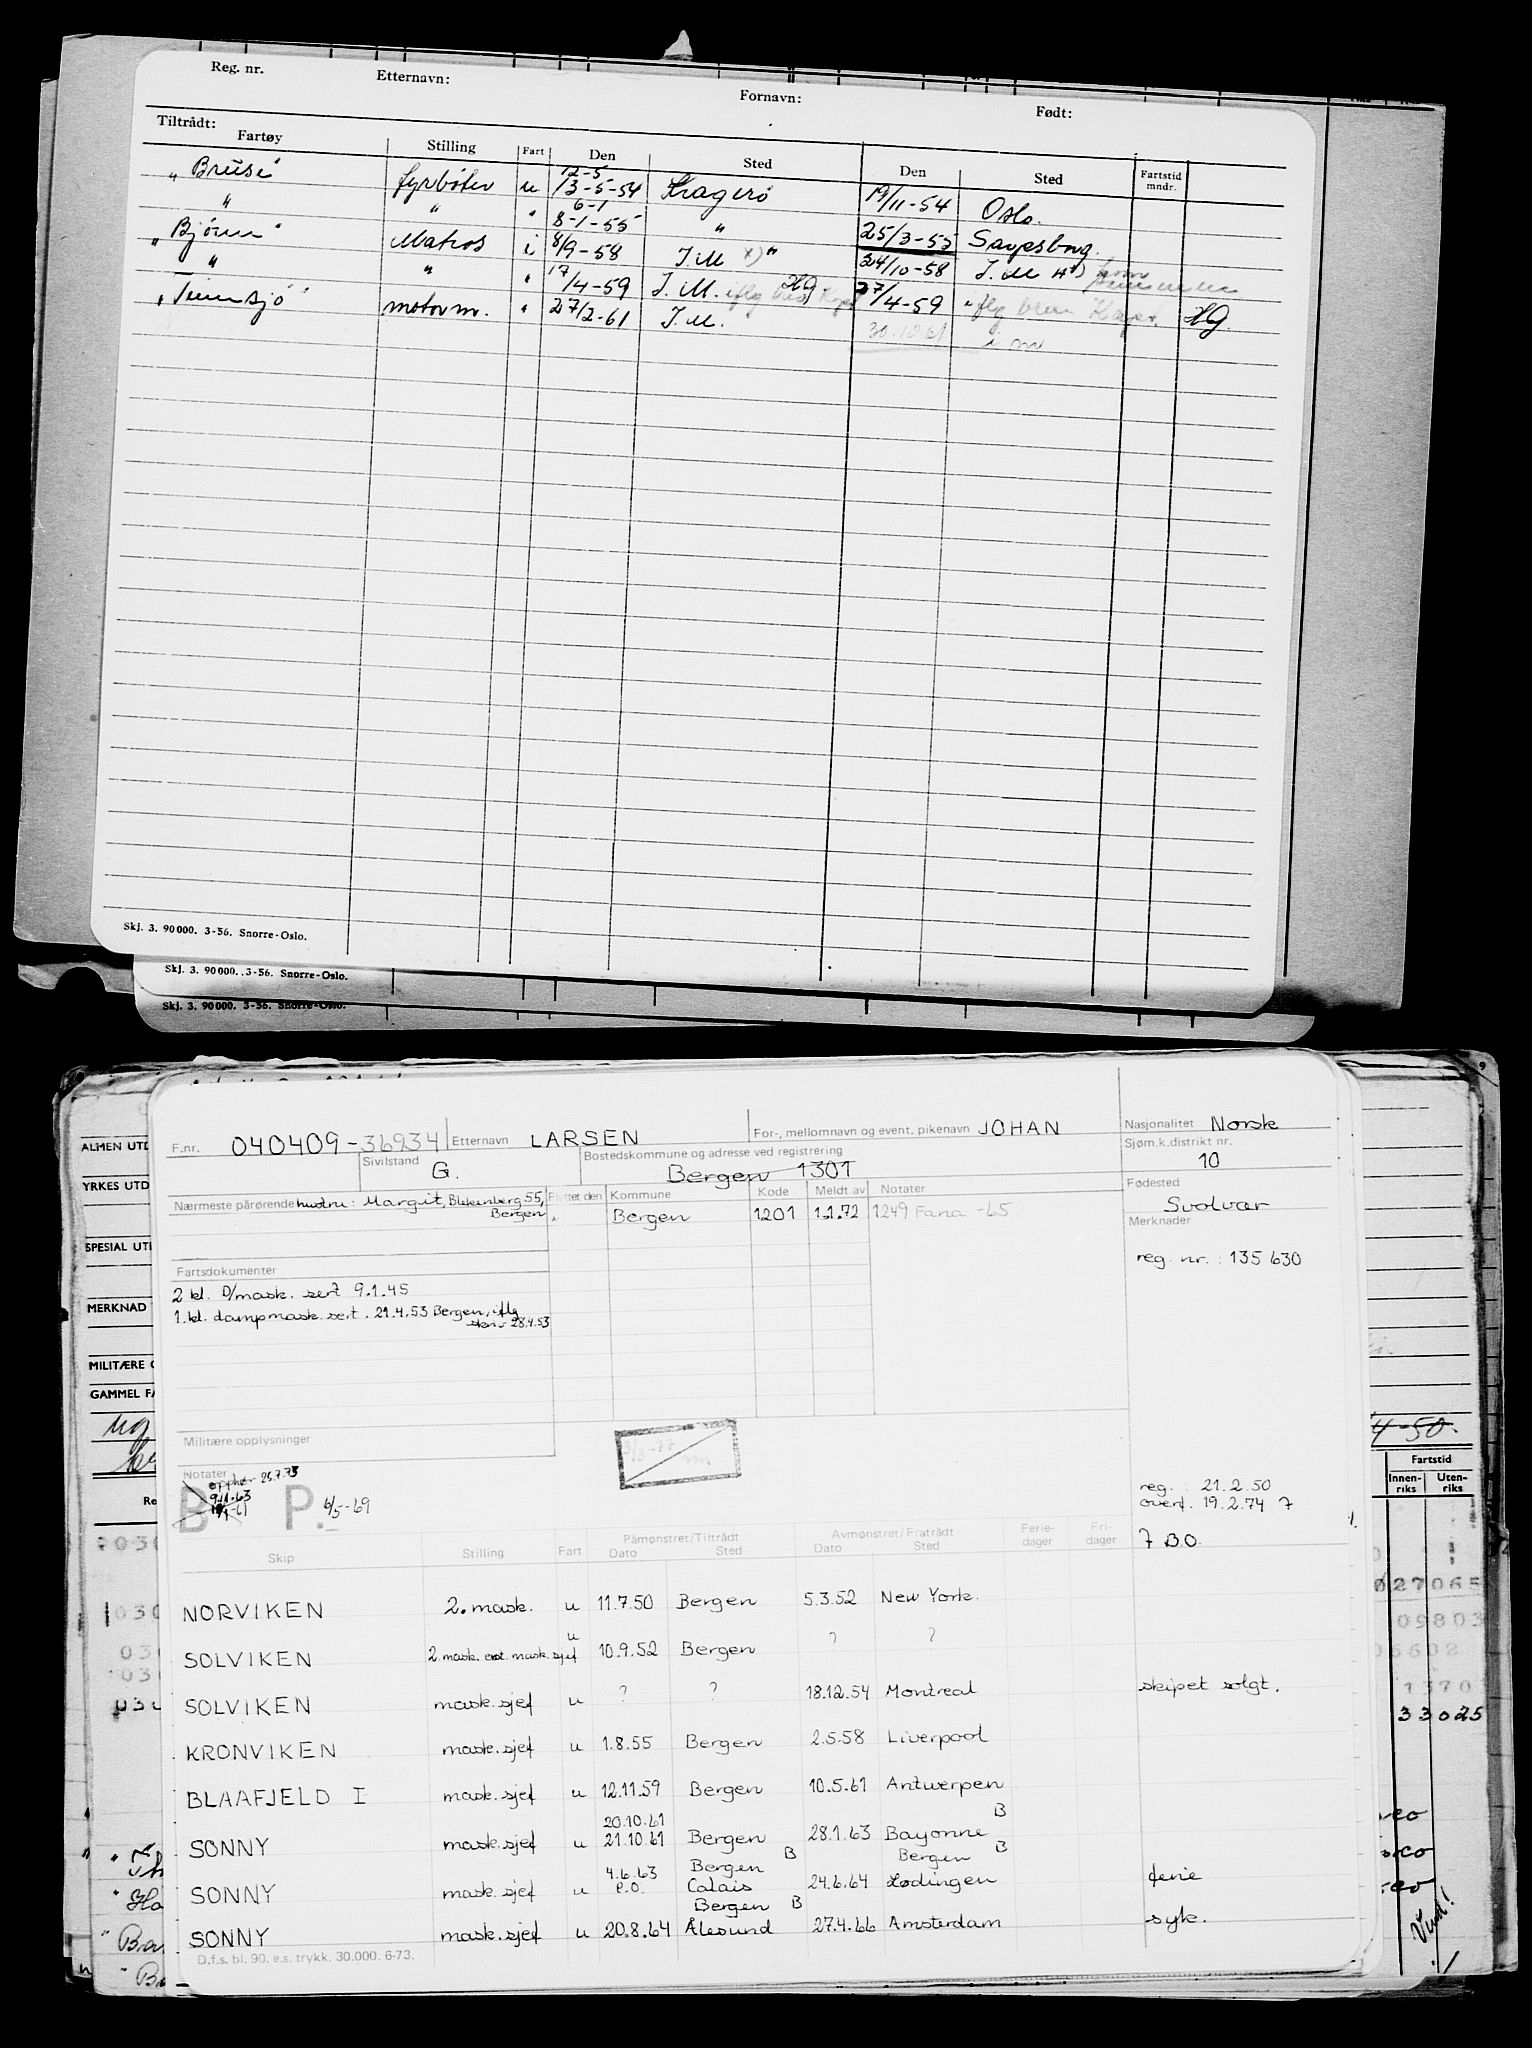 Reg. nr. Etternavn: Fornavn: Født:
Tiltrådt:
Fartøy Stilling Fart Den Sted Den Sted Fartstid mndr.
12-5
„Bruse“ fyrbøter u 13-5-54 Kragerø 19/11-54 Oslo.
6-1
" " " 8-1-55 " 25/3-55 Sarpsborg.
„Bjørn“ Matros i 8/9-58 I.M x) " 24/10-58 I.M
" " " 17/4-59 I.M. iflg HG 27/4-59 iflg brev HG
„Tinnsjø“ motorm. " 27/2-61 I.M.
30.10.61 i m
Skj. 3. 90000. 3-56. Snorre-Oslo.
Skj. 3. 90000. 3-56. Snorre-Oslo.
Skj. 3. 90000. 3-56. Snorre-Oslo.
ALMEN UTD
YRKES UTD
SPESIAL UTD
MERKNAD
MILITÆRE O
GAMMEL FA
4-50.
Fartstid
Innen-riks Uten-riks
27065
09803
33025
F.nr. 040409-36934 Etternavn LARSEN For-, mellomnavn og event. pikenavn JOHAN Nasjonalitet Norsk
Sivilstand G. Bostedskommune og adresse ved registrering Bergen 1301 Sjøm.k.distrikt nr. 10
Nærmeste pårørende hustru: Margit, Blekenberg 55, Bergen Flyttet den Kommune Kode Meldt av Notater Fødested Svolvær
Bergen 1201 1.1.72 1249 Fana -65
Merknader
reg. nr.: 135630
Fartsdokumenter
2 kl. D/mask. sert 9.1.45
1. kl. dampmask. sert. 21.4.53 Bergen, iflg
skriv 28.4.53
Militære opplysninger
Notater
opphør 25.7.73
9.11.63
B P. 6/5-69
reg. : 21.2.50
overf. 19.2.74 7
7 B.O.
Skip Stilling Fart Påmønstret/Tiltrådt Dato Sted Avmønstret/Fratrådt Dato Sted Ferie-dager Fri-dager
NORVIKEN 2. mask. u 11.7.50 Bergen 5.3.52 New York.
SOLVIKEN 2. mask. est. mask. sjef u 10.9.52 Bergen ? ?
SOLVIKEN mask. sjef u ? ? 18.12.54 Montreal skipet solgt.
KRONVIKEN mask. sjef u 1.8.55 Bergen 2.5.58 Liverpool
BLAAFJELD I mask. sjef u 12.11.59 Bergen 10.5.61 Antwerpen
20.10.61 B
SONNY mask. sjef u 21.10.61 Bergen B 28.1.63 Bayonne
Bergen B
4.6.63 Bergen
SONNY mask. sjef u P.O. Calais 24.6.64 Lødingen ferie
Bergen B
SONNY mask. sjef u 20.8.64 Ålesund 27.4.66 Amsterdam syk.
D.f.s. bl. 90. e.s. trykk. 30.000. 6-73.